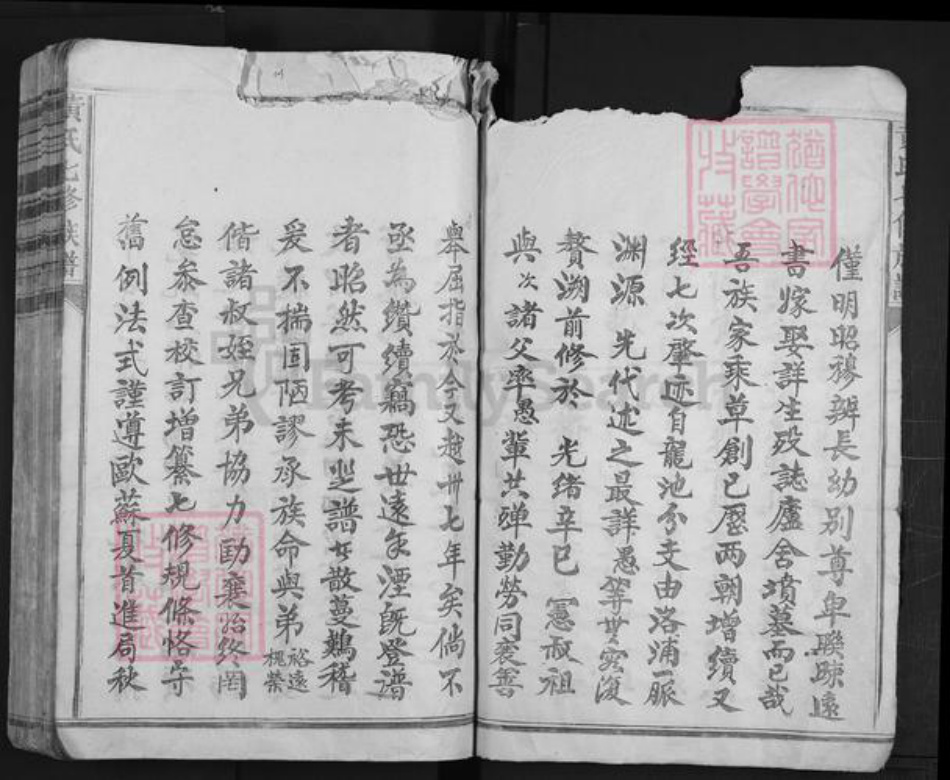 僅明昭穆辨長幼别尊卑聯踈遠
書嫁娶詳生殁誌廬舍墳墓而已哉
吾族家乘草創已歷两朝增續又
經七次肇迹自龍池分支由洛浦一脈
渊源 先代述之最詳愚等無容復
贅溯前修於 光緒辛巳 憲叔祖
與次諸父率愚輩共殫勤勞同襄善
舉屈指於今又越卅七年矣倘不
亟為纘續竊恐世遠年湮既登譜
者昭然可考未登譜者散蔓難稽
爰不揣固陋謬承族命與弟裕遠槐榮
偕諸叔姪兄弟協力勷襄始終罔
怠叅查校訂增纂七修規條恪守
舊例法式謹遵歐蘇夏首進局秋
黄氏七修族譜
猶他家譜學會收藏
FamilySearch